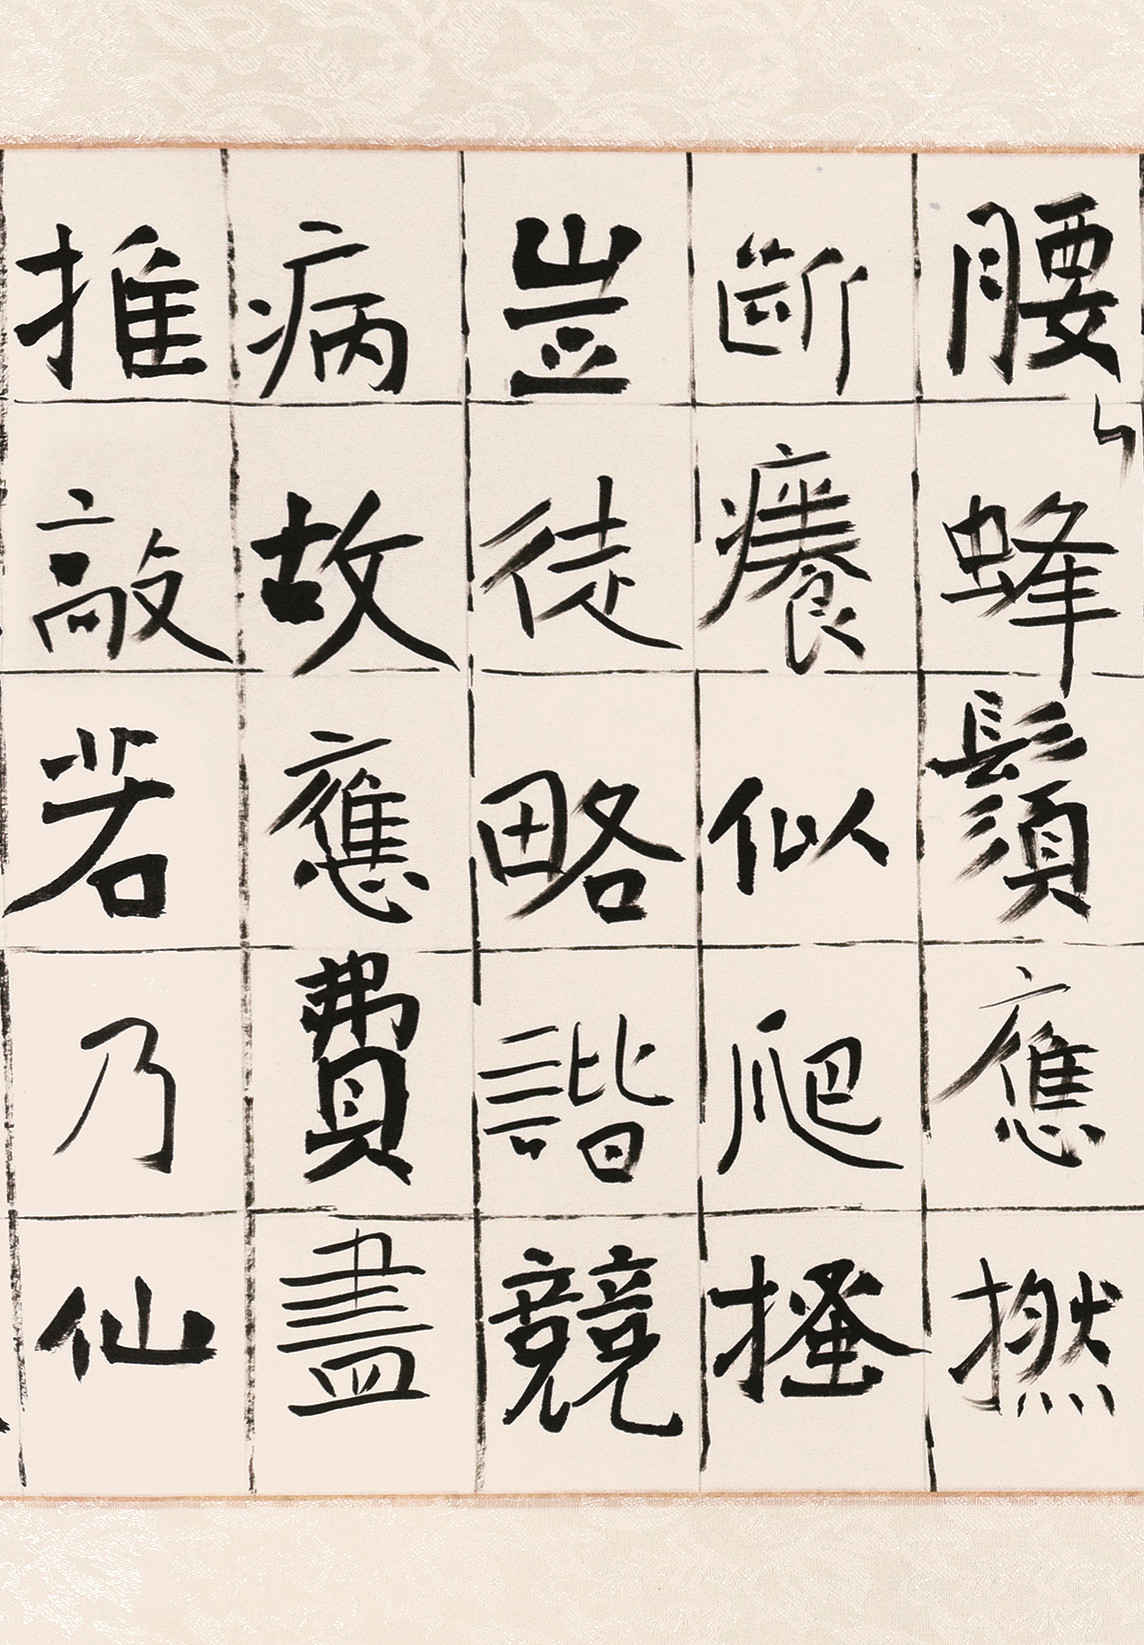 腰蜂鬚應撚
斷癢似爬搔
豈徒略諧競
病故應費盡
推敲若乃仙